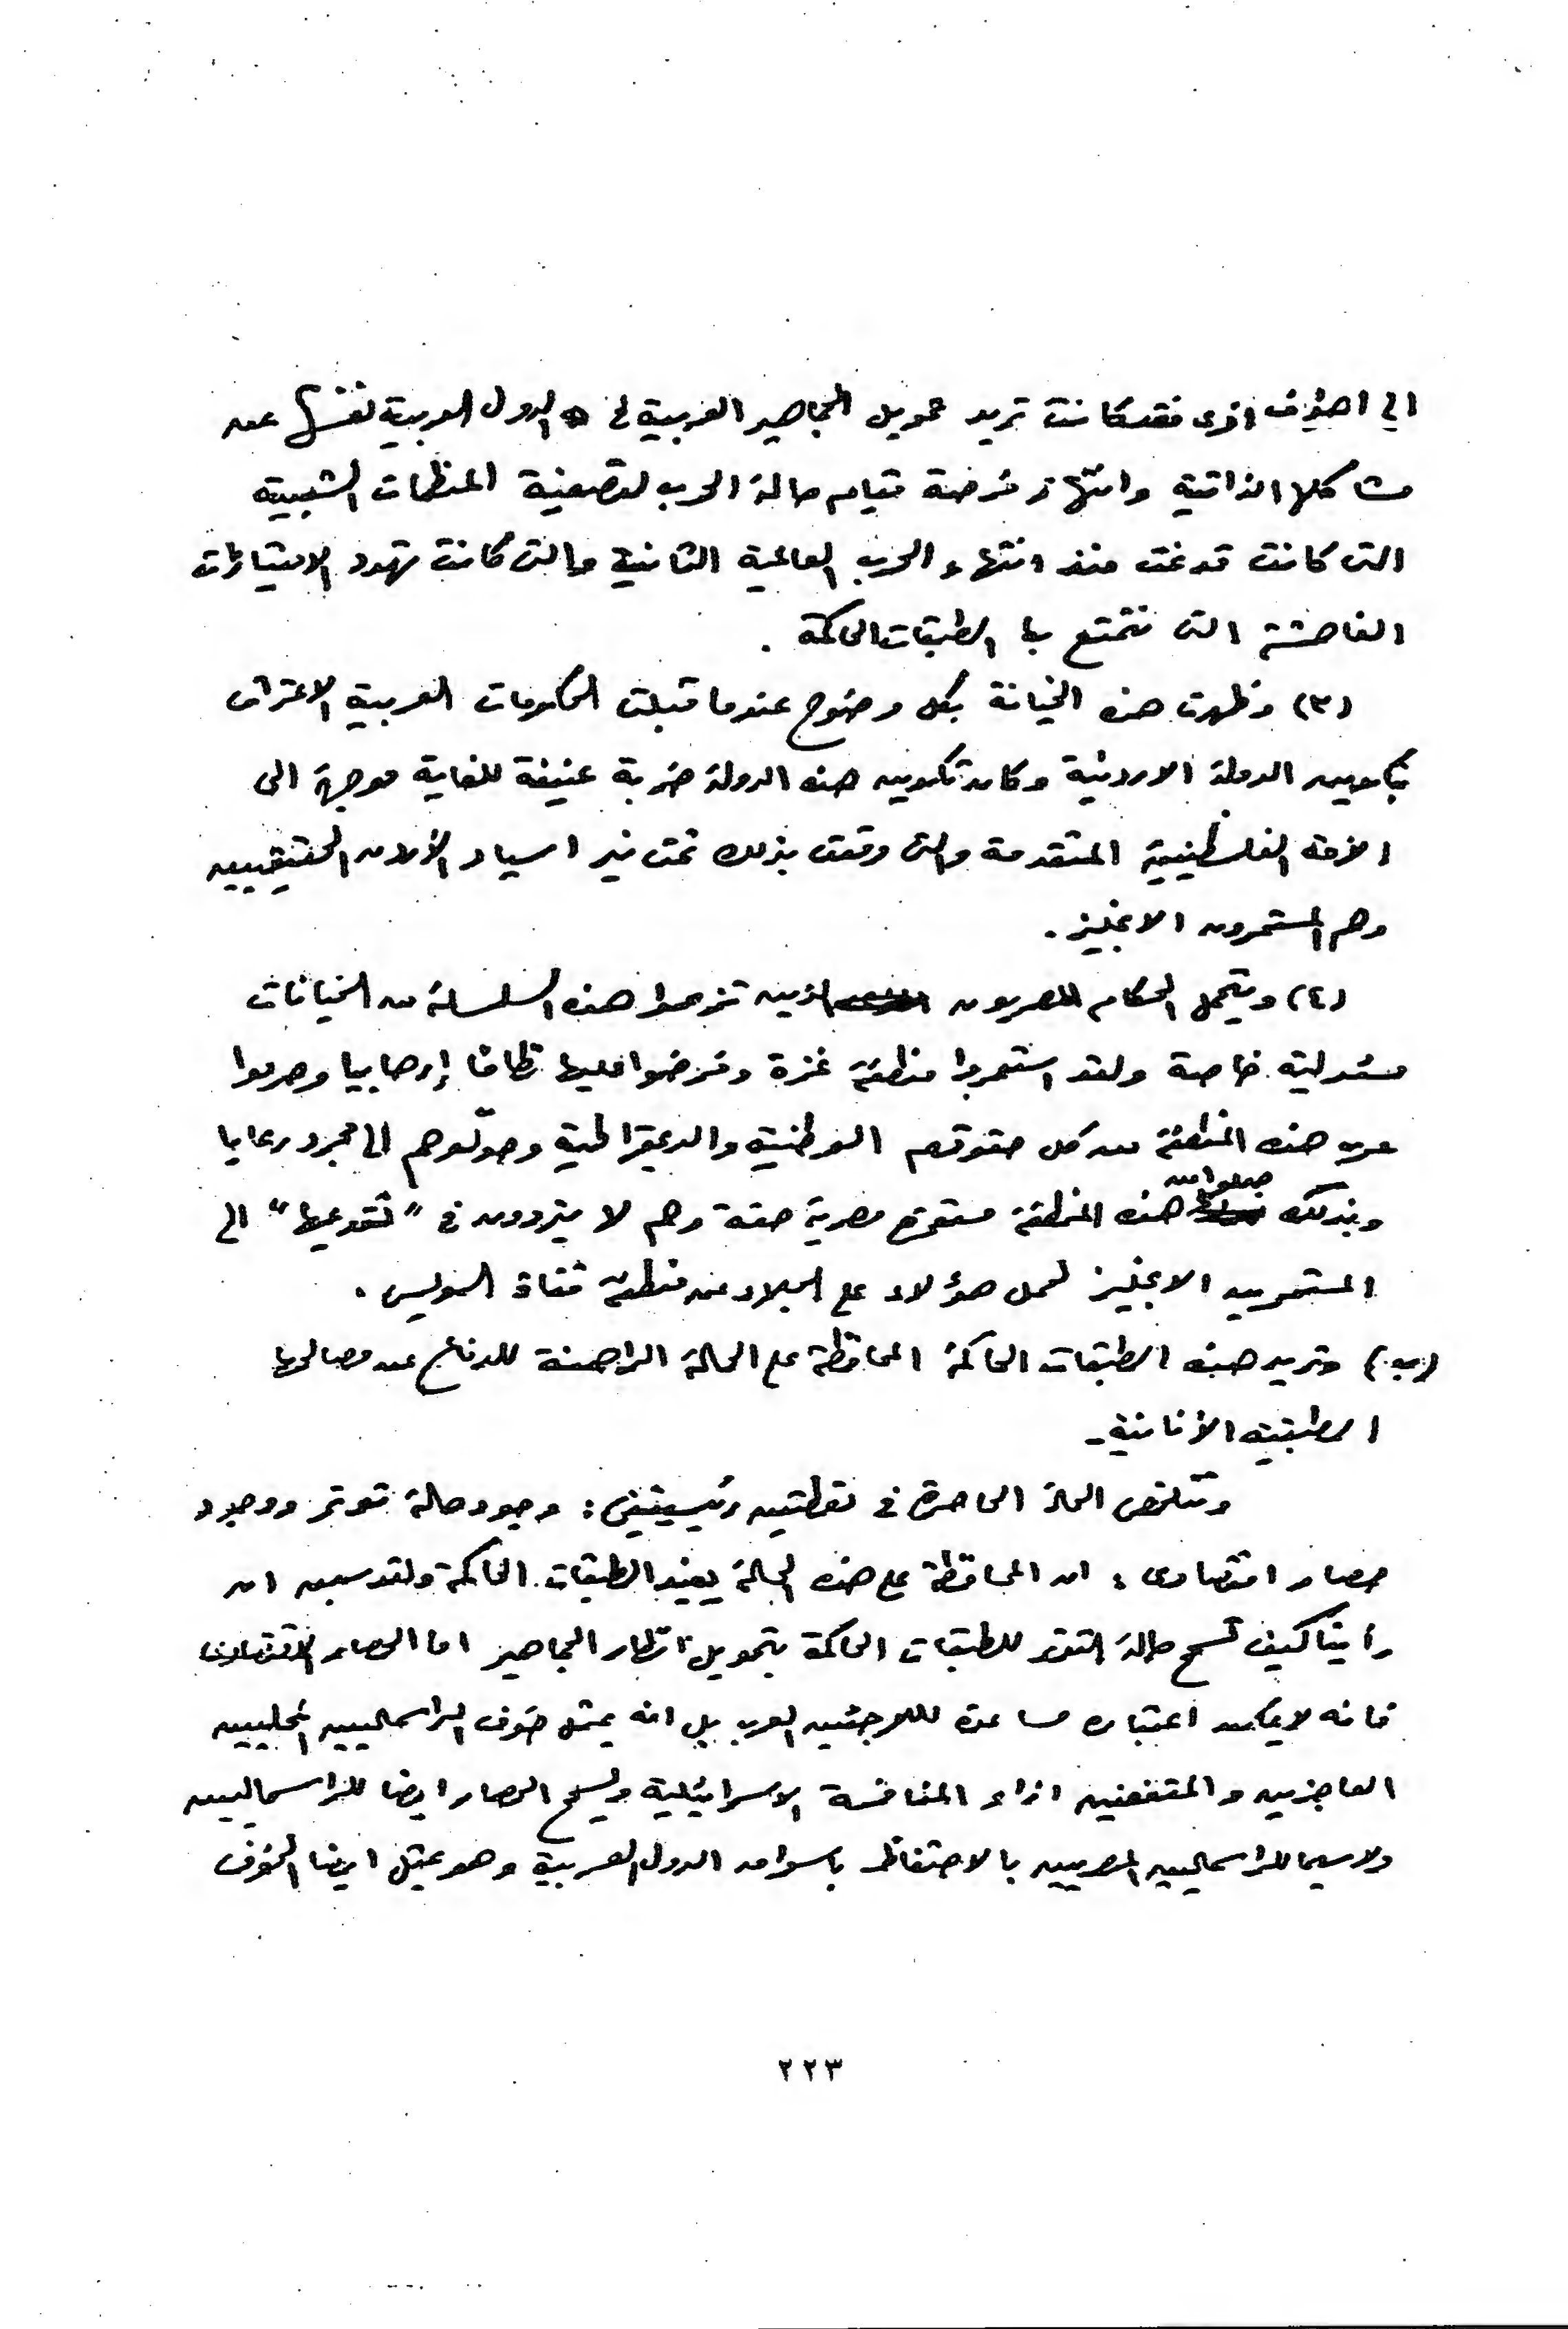 الى اهداف اخرى فقد كانت تريد تحويل الجماهير العربية فى الدول العربية نفسها عن
مشاكلها الذاتية وانتهاز فرصة قيام حالة الحرب لتصفية المنظمات الشعبية
التى كانت قد نمت منذ انتهاء الحرب العالمية الثانية والتى كانت تهدد الامتيازات
الفاحشة التى تتمتع بها الطبقات الحاكمة .
(٣) وظهرت هذه الخيانة بكل وضوح عندما قبلت الحكومات العربية الاعتراف
بتكوين الدولة الاردنية وكان تكوين هذه الدولة ضربة عنيفة للغاية موجهة الى
الأمة الفلسطينية المتقدمة والتى وقعت بذلك تحت نير اسياد الأردن الحقيقيين
وهم المستعمرون الانجليز .
(٤) ويتحمل الحكام المصريون الذين تزعموا هذه السلسلة من الخيانات
مسئولية خاصة ولقد استعمروا منطقة غزة وفرضوا عليها نظاما إرهابيا وحرموا
عرب هذه المنطقة من كل حقوقهم الوطنية والديمقراطية وحوّلوهم الى مجرد رعايا
وبذلك جعلوا من هذه المنطقة مستعمرة مصرية حقة وهم لا يترددون فى "تقديمها" الى
المستعمرين الانجليز لحمل هؤلاء على الجلاء عن منطقة قناة السويس .
(ب) وتريد هذه الطبقات الحاكمة المحافظة على الحالة الراهنة للدفاع عن مصالحها
الطبقية الأنانية-
وتتلخص الحالة الحاضرة فى نقطتين رئيسيتين : وجود حالة توتر ووجود
حصار اقتصادى ؛ ان المحافظة على هذه الحالة يفيد الطبقات الحاكمة ولقد سبق ان
رأينا كيف تسمح حالة التوتر للطبقات الحاكمة بتحويل انظار الجماهير اما الحصار الاقتصادى
فانه لا يمكن اعتباره مساعدة لللاجئين العرب بل انه يمثل خوف الراسماليين المحليين
العاجزين والمتعفنين ازاء المنافسة الاسرائيلية ويسمح الحصار ايضا للراسماليين
ولاسيما للراسماليين المصريين بالاحتفاظ باسواق الدول العربية وهو يمثل ايضا الخوف
٢٢٣